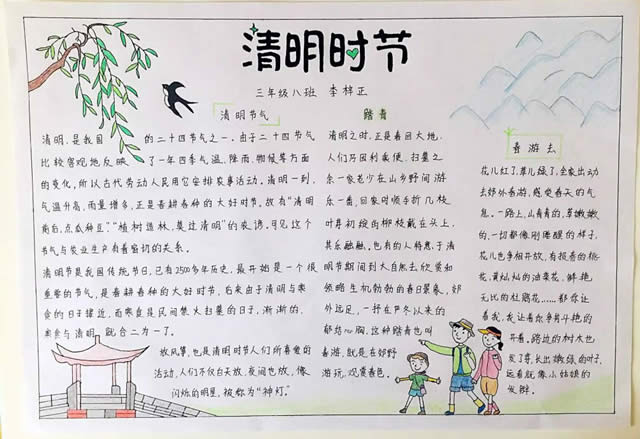 清明时节
三年级八班 李梓正
清明节气
清明,是我国 的二十四节气之一。由于二十四节气
比较客观地反映了一年四季气温、降雨、物候等方面
的变化,所以古代劳动人民用它安排农事活动。清明一到,
气温升高,雨量增多,正是春耕春种的大好时节。故有“清明
前后,点瓜种豆”“植树造林,莫过清明”的农谚。可见这个
节气与农业生产有着密切的关系。
清明节是我国传统节日,已有2500多年历史。最开始是一个很
重要的节气,是春耕春种的大好时节,后来由于清明与寒
食的日子接近,而寒食是民间禁火扫墓的日子,渐渐的,
寒食与清明 就合二为一了。
放风筝,也是清明时节人们所喜爱的
活动,人们不仅白天放,夜间也放,像
闪烁的明星,被称为“神灯”。
踏青
清明之时,正是春回大地,
人们乃因利乘便,扫墓之
余一家老少在山乡野间游
乐一番,回家时顺手折几枝
叶芽初绽的柳枝戴在头上,
其乐融融。也有的人特意于清
明节期间到大自然去欣赏和
领略生机勃勃的春日景象,郊
外远足,一抒在严冬以来的
郁结心胸,这种踏青也叫
春游,就是在郊野
游玩,观赏春色。
春游去
花儿红了,草儿绿了,全家出动
去郊外春游,感受春天的气
息。一路上,山青青的,草嫩嫩
的,一切都像刚睡醒的样子,
花儿也争相开放,有报春的桃
花,黄灿灿的油菜花,鲜艳
无比的杜鹃花……都你让
着我,我让着你争奇斗艳的
开着。路边的树木也
发了芽,长出嫩绿的叶子,
远看就像小姑娘的
发辫。